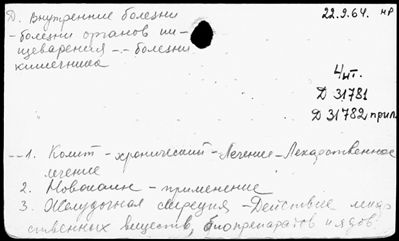 Д. Внутренние болезни
22.9.64. нр
-болезни органов пи-
щеварения -- болезни
кишечника
4 шт.
Д 31781
Д 31782 прил
--1. Колит - хронический - Лечение - Лекарственное
лечение
2. Новокаин - применение
3. Желудочная секреция - Действие лекар
ственных веществ, биопрепаратов и ядов.